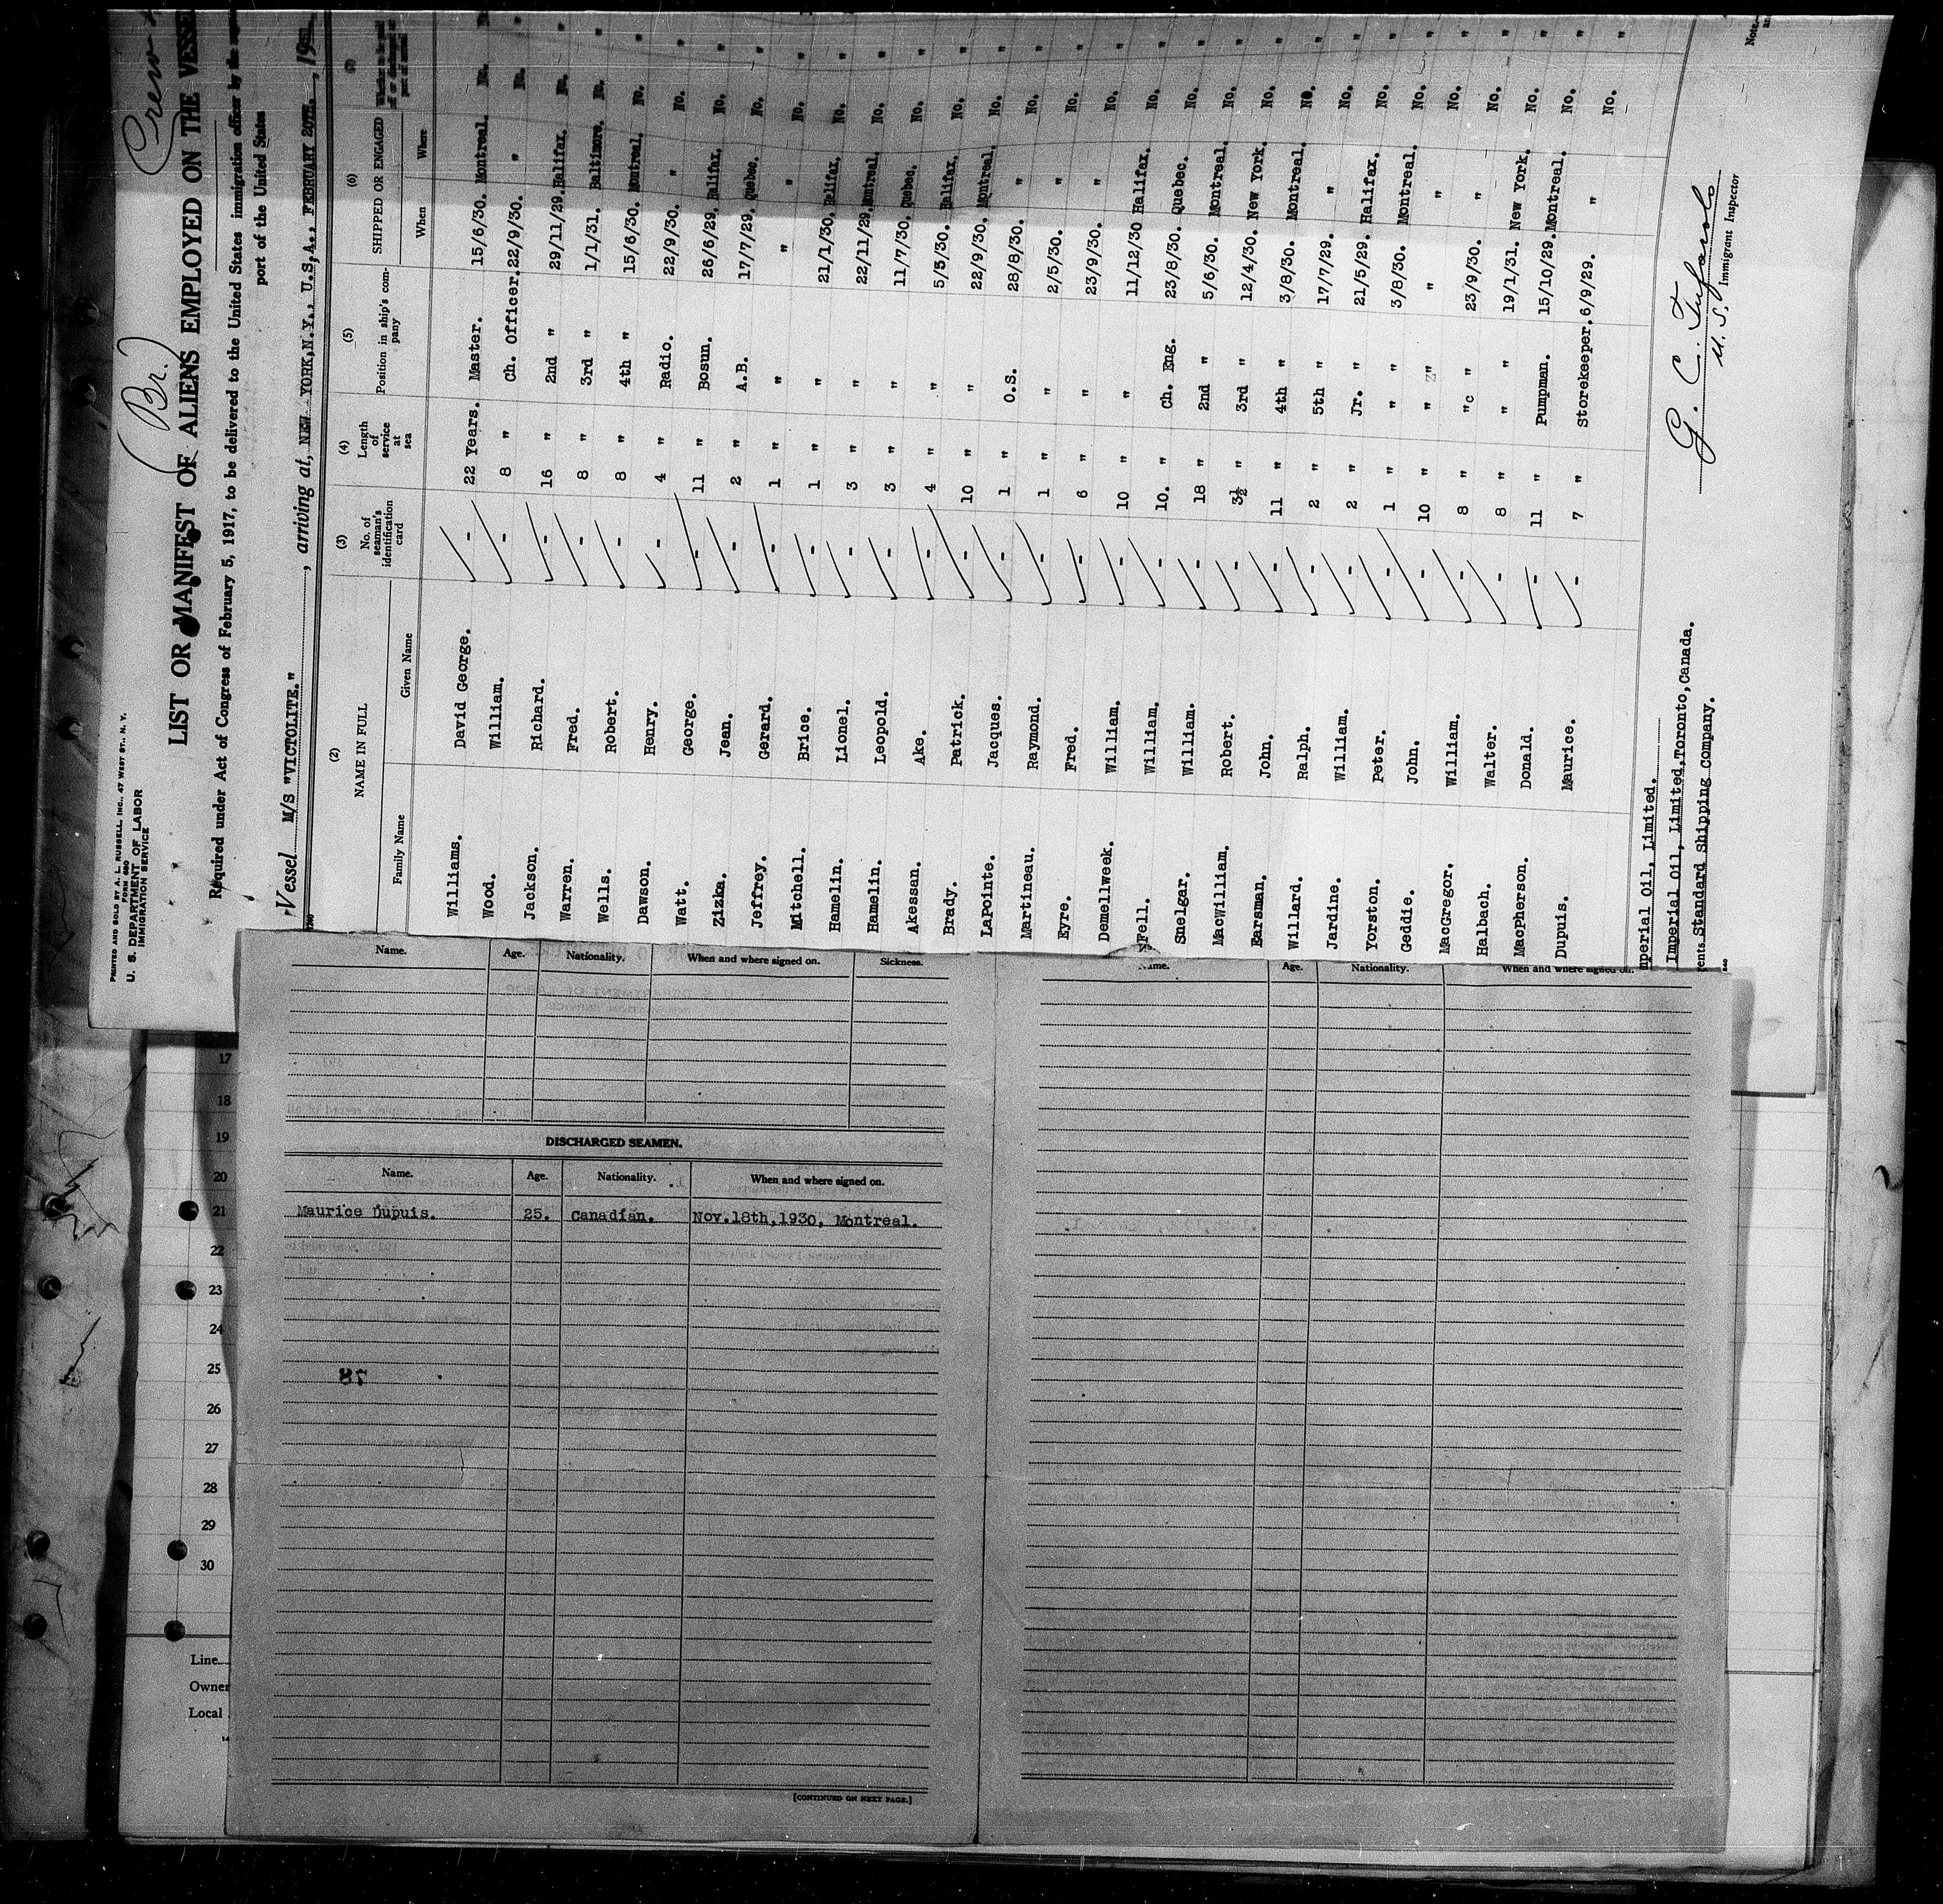 PRINTED AND SOLD BY A. L. RUSSELL, INC., 47 WEST ST., N. Y.
FORM 680
U. S. DEPARTMENT OF LABOR
IMMIGRATION SERVICE
(Br.) Crew
LIST OR MANIFEST OF ALIENS EMPLOYED ON THE VESSEL
Required under Act of Congress of February 5, 1917, to be delivered to the United States immigration officer by the
port of the United States
Vessel M/S "VICTOLITE.", arriving at, NEW YORK, N.Y., U.S.A., FEBRUARY 20TH., 19
(2) (3) (4) (5) (6)
NAME IN FULL No. of seaman's identification card Length of service at sea Position in ship's company SHIPPED OR ENGAGED
Family Name Given Name When Where
Williams. David George. - 22 Years. Master. 15/6/30. Montreal. No. "
Wood. William. - 8 " Ch. Officer. 22/9/30. " No. "
Jackson. Richard. - 16 " 2nd " 29/11/29. Halifax. No. "
Warren. Fred. - 8 " 3rd " 1/1/31. Baltimore. No. "
Wells. Robert. - 8 " 4th " 15/6/30. Montreal. No. "
Dawson. Henry. - 4 " Radio. 22/9/30. " No. "
Watt. George. - 11 " Bosun. 26/6/29. Halifax. No. "
Zizka. Jean. - 2 " A.B. 17/7/29. Quebec. No. "
Jeffrey. Gerard. - 1 " " " " No. "
Mitchell. Brice. - 1 " " 21/1/30. Halifax. No. "
Hamelin. Lionel. - 3 " " 22/11/29. Montreal. No. "
Hamelin. Leopold. - 3 " " 11/7/30. Quebec. No. "
Akessan. Ake. - 4 " " 5/5/30. Halifax. No. "
Brady. Patrick. - 10 " " 22/9/30. Montreal. No. "
LaPointe. Jacques. - 1 " O.S. 28/8/30. " No. "
Martineau. Raymond. - 1 " " 2/5/30. " No. "
Eyre. Fred. - 6 " " 23/9/30. " No. "
Demellweek. William. - 10 " " 11/12/30 Halifax. No. "
Fell. William. - 10. " Ch. Eng. 23/8/30. Quebec. No. "
Snelgar. William. - 18 " 2nd " 5/6/30. Montreal. No. "
MacWilliam. Robert. - 3½ " 3rd " 12/4/30. New York. No. "
Earsman. John. - 11 " 4th " 3/8/30. Montreal. No. "
Willard. Ralph. - 2 " 5th " 17/7/29. " No. "
Jardine. William. - 2 " Jr. " 21/5/29. Halifax. No. "
Yorston. Peter. - 1 " " " 3/8/30. Montreal. No. "
Geddie. John. - 10 " " " " " No. "
MacGregor. William. - 8 " "c " 23/9/30. " No. "
Halbach. Walter. - 8 " " " 19/1/31. New York. No. "
MacPherson. Donald. - 11 " Pumpman. 15/10/29. Montreal. No. "
Dupuis. Maurice. - 7 " Storekeeper. 6/9/29. " No. "
mperial Oil, Limited.
Imperial Oil, Limited, Toronto, Canada.
ents Standard Shipping Company.
G. C. Tufarolo
U. S. Immigrant Inspector
Note.
Name. Age. Nationality. When and where signed on. Sickness.
Name. Age. Nationality. When and where signed on.
DISCHARGED SEAMEN.
Name. Age. Nationality. When and where signed on.
Maurice Dupuis. 25. Canadian. Nov.18th,1930, Montreal.
78
[CONTINUED ON NEXT PAGE.]
17
18
19
20
21
22
23
24
25
26
27
28
29
30
Line
Owner
Local